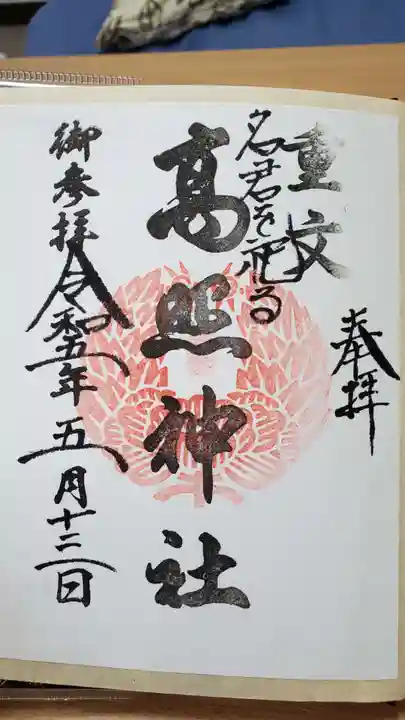 奉拝
重文
名君を祀る
高照神社
御参拝令和五年五月十二日